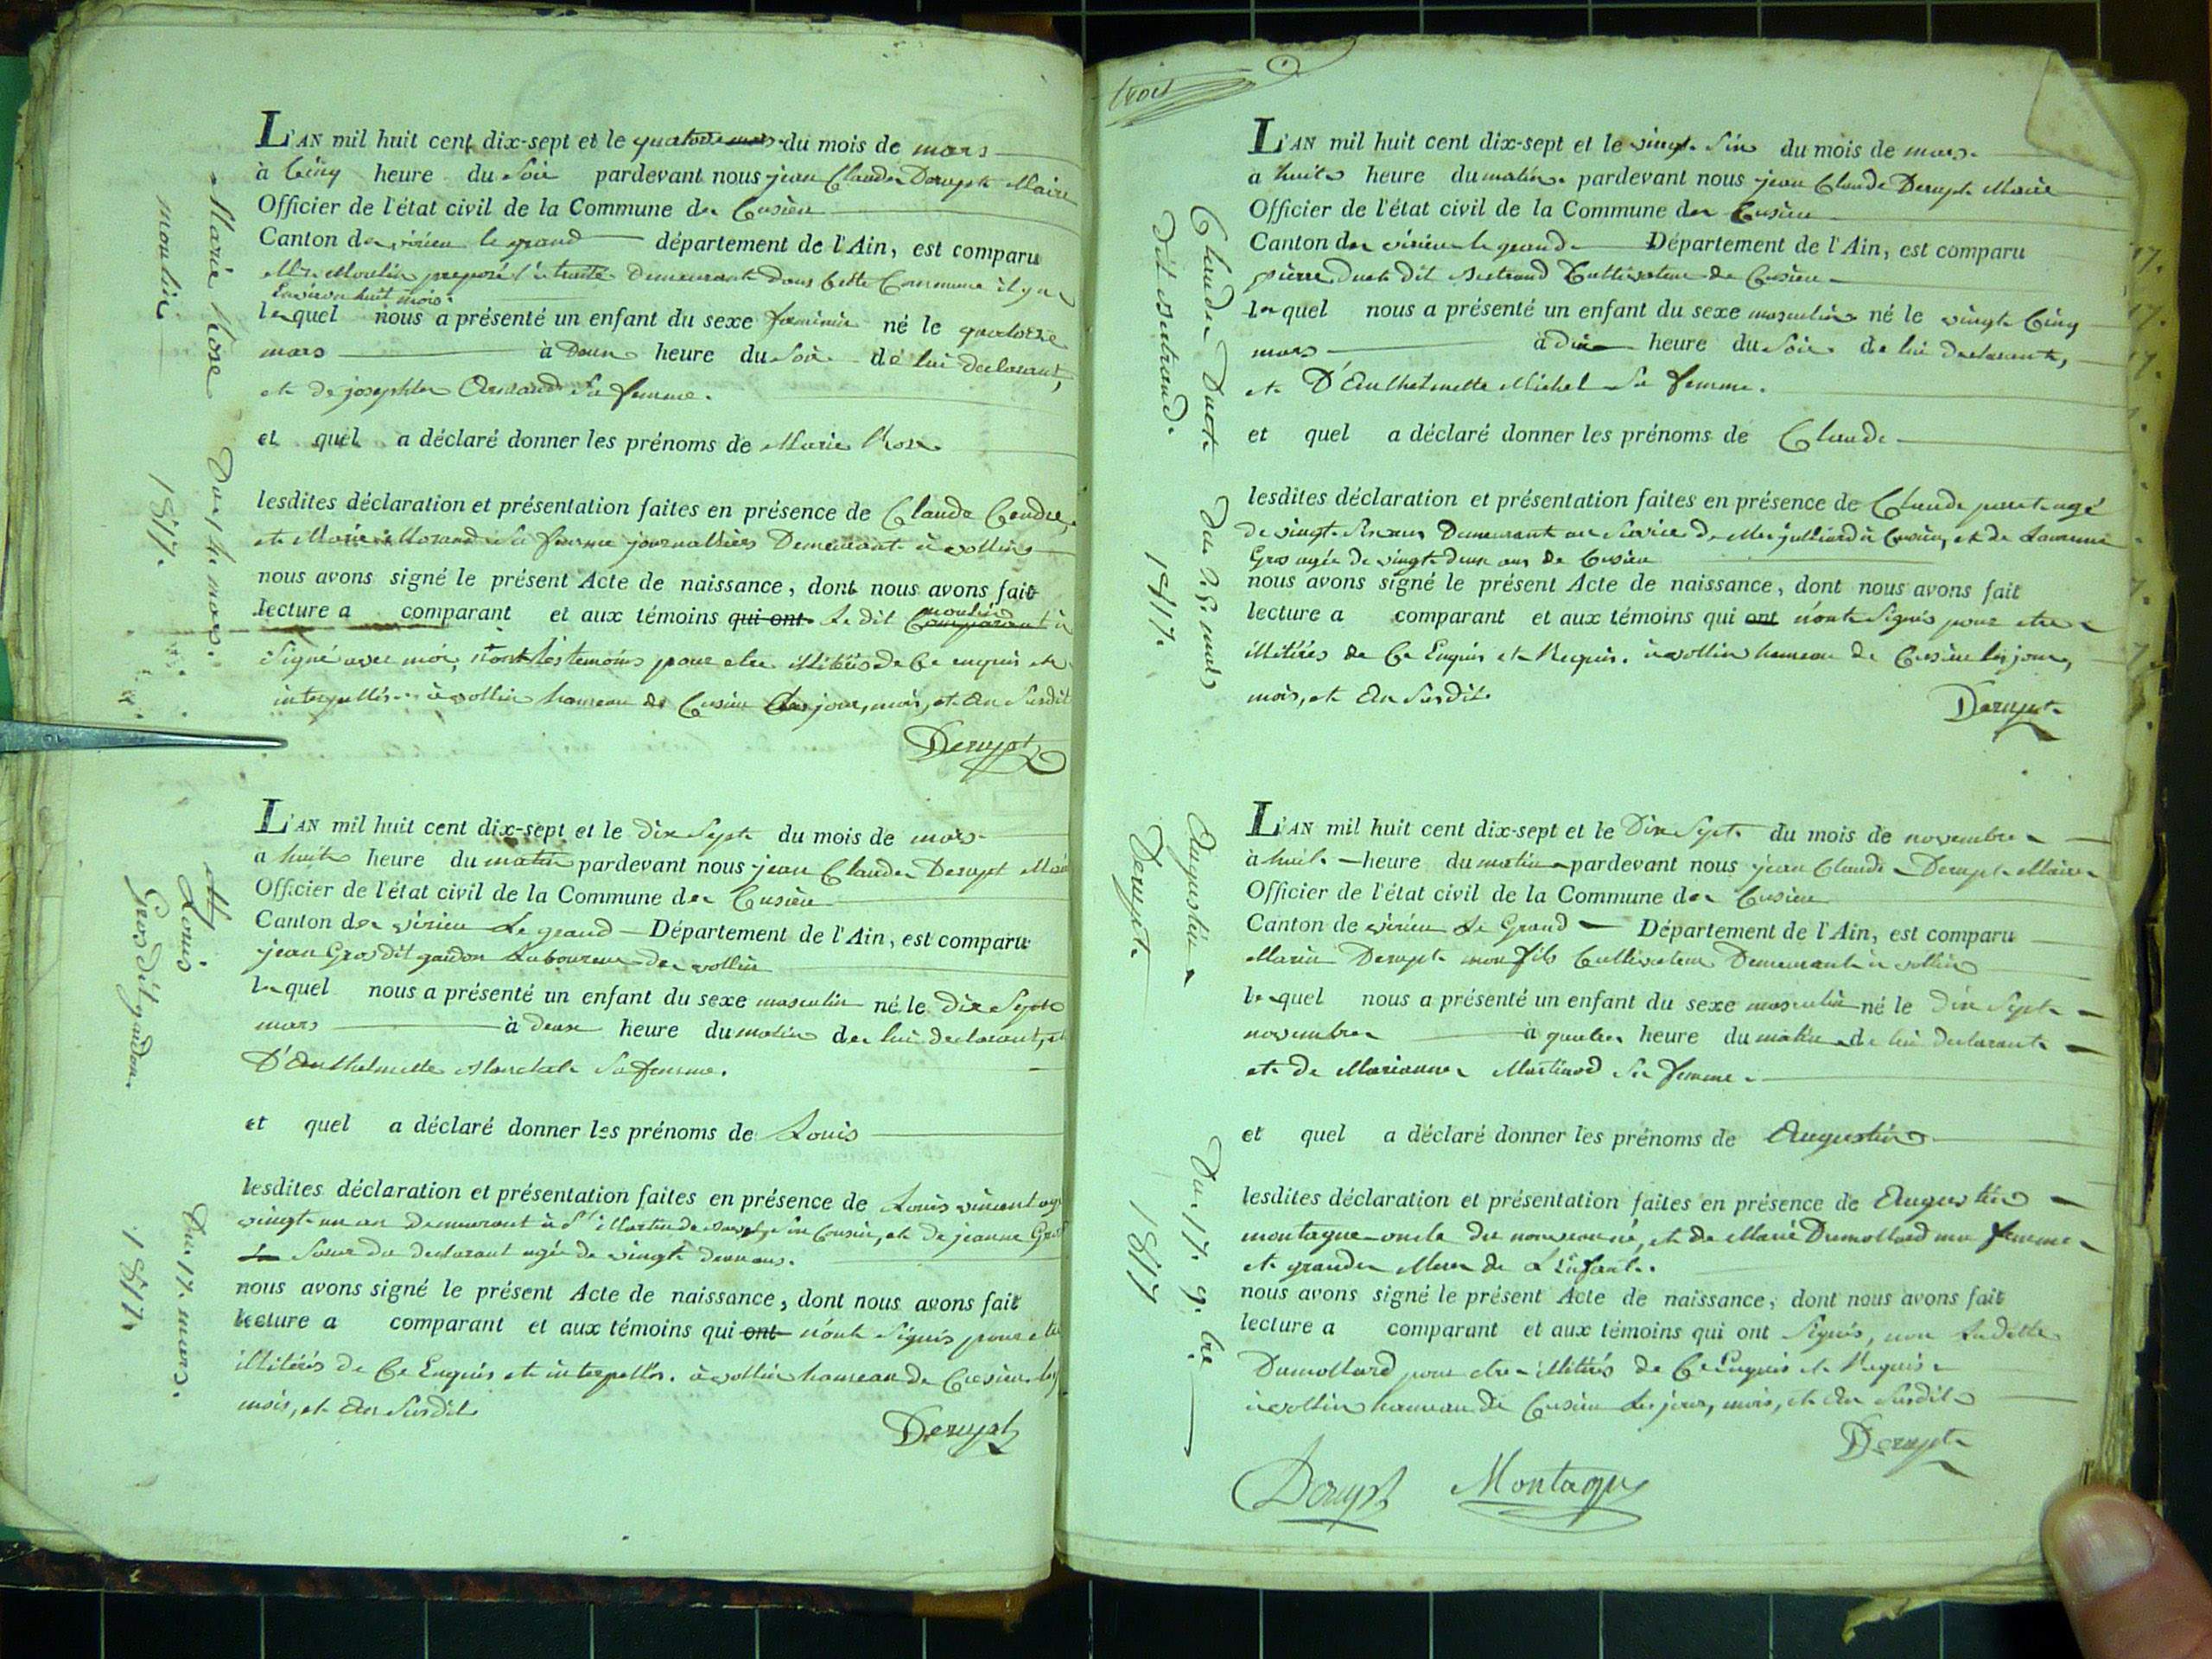 L'AN mil huit cent dix-sept et le quatorze du mois de mars
à Cinq heure du Soir pardevant nous jean Claude Derupt Maire
Officier de l'état civil de la Commune de Cusieu
Canton de virieu le grand département de l'Ain, est comparu
Mr. Moulin preposé demeurant dans Cette Commune il y a
Environ huit mois.
lequel nous a présenté un enfant du sexe feminin né le quatorze
mars à Deux heure du Soir de lui declarant,
et de josephte Armand Sa femme.
et quel a déclaré donner les prénoms de Marie Rose
lesdites déclaration et présentation faites en présence de Claude
et Marie Morand Sa femme journalliers Demeurant à vollin
nous avons signé le présent Acte de naissance, dont nous avons fait
lecture a comparant et aux témoins qui ont Le dit moulin Comparant à
Signé avec moi, les temoins pour etre illitirés de Ce enquis et
interpellés à vollin hameau de Cusieu Les jour, mois, et An Susdit
Derupt
Marie Rose
moulin
Du 14 mars.
1817.
L'AN mil huit cent dix-sept et le dix Sept du mois de mars
a huit heure du matin pardevant nous jean Claude Derupt
Officier de l'état civil de la Commune de Cusieu
Canton de virieu Le grand Département de l'Ain, est comparu
jean Gros dit gardon Laboureur de vollin
lequel nous a présenté un enfant du sexe masculin né le dix Sept
mars à deux heure du matin de lui declarant, et
D'Anthelmette Sa femme.
et quel a déclaré donner les prénoms de Louis
lesdites déclaration et présentation faites en présence de Louis vincent
vingt un an Demeurant à St. Martin de Son Cousin, et de jeanne
Soeur du declarant agée de vingt deux ans.
nous avons signé le présent Acte de naissance, dont nous avons fait
lecture a comparant et aux témoins qui ont n'ont Signés pour etre
illitirés de Ce Enquis et interpellés. à vollin hameau de Cusieu les
mois, et An Susdit
Derupt
Louis
Gros dit gardon.
Du 17. mars.
1817.
trois
L'AN mil huit cent dix-sept et le vingt Six du mois de mars.
a huit heure du matin pardevant nous jean Claude Derupt Maire
Officier de l'état civil de la Commune de Cusieu
Canton de virieu le grand Département de l'Ain, est comparu
pierre Duct dit Bertrand Cultivateur de Cusieu
Lequel nous a présenté un enfant du sexe masculin né le vingt Cinq
mars à dix heure du Soir de lui declarant,
et D'Anthelmette Michel Sa femme.
et quel a déclaré donner les prénoms de Claude
lesdites déclaration et présentation faites en présence de Claude agé
de vingt Six ans Demeurant au Service de Mr. julliard à Cusieu, et de
Gros agée de vingt deux ans de Cusieu
nous avons signé le présent Acte de naissance, dont nous avons fait
lecture a comparant et aux témoins qui ont n'ont Signés pour etre
illitirés de Ce Enquis et Requis. à vollin hameau de Cusieu les jour,
mois, et An Susdit.
Derupt
Claude Duct
dit Bertrand.
1817.
L'AN mil huit cent dix-sept et le Dix Sept du mois de novembre
à huit heure du matin pardevant nous jean Claude Derupt Maire
Officier de l'état civil de la Commune de Cusieu
Canton de virieu Le Grand Département de l'Ain, est comparu
Marin Derupt mon fils Cultivateur Demeurant à vollin
lequel nous a présenté un enfant du sexe masculin né le dix Sept
novembre à quatre heure du matin de lui declarant
et de Marianne Martinod Sa femme.
et quel a déclaré donner les prénoms de Augustin
lesdites déclaration et présentation faites en présence de Augustin
montagne oncle du nouveau né, et de Marie Dumollard ma femme
et grande Mere de L'Enfant.
nous avons signé le présent Acte de naissance, dont nous avons fait
lecture a comparant et aux témoins qui ont Signés, non Ladette
Dumollard pour etre illitirés de Ce Enquis et Requis.
à vollin hameau de Cusieu Les jour, mois, et An Susdit
Derupt
Derupt Montagne
Augustin
Derupt
Du 17. 9.bre
1817